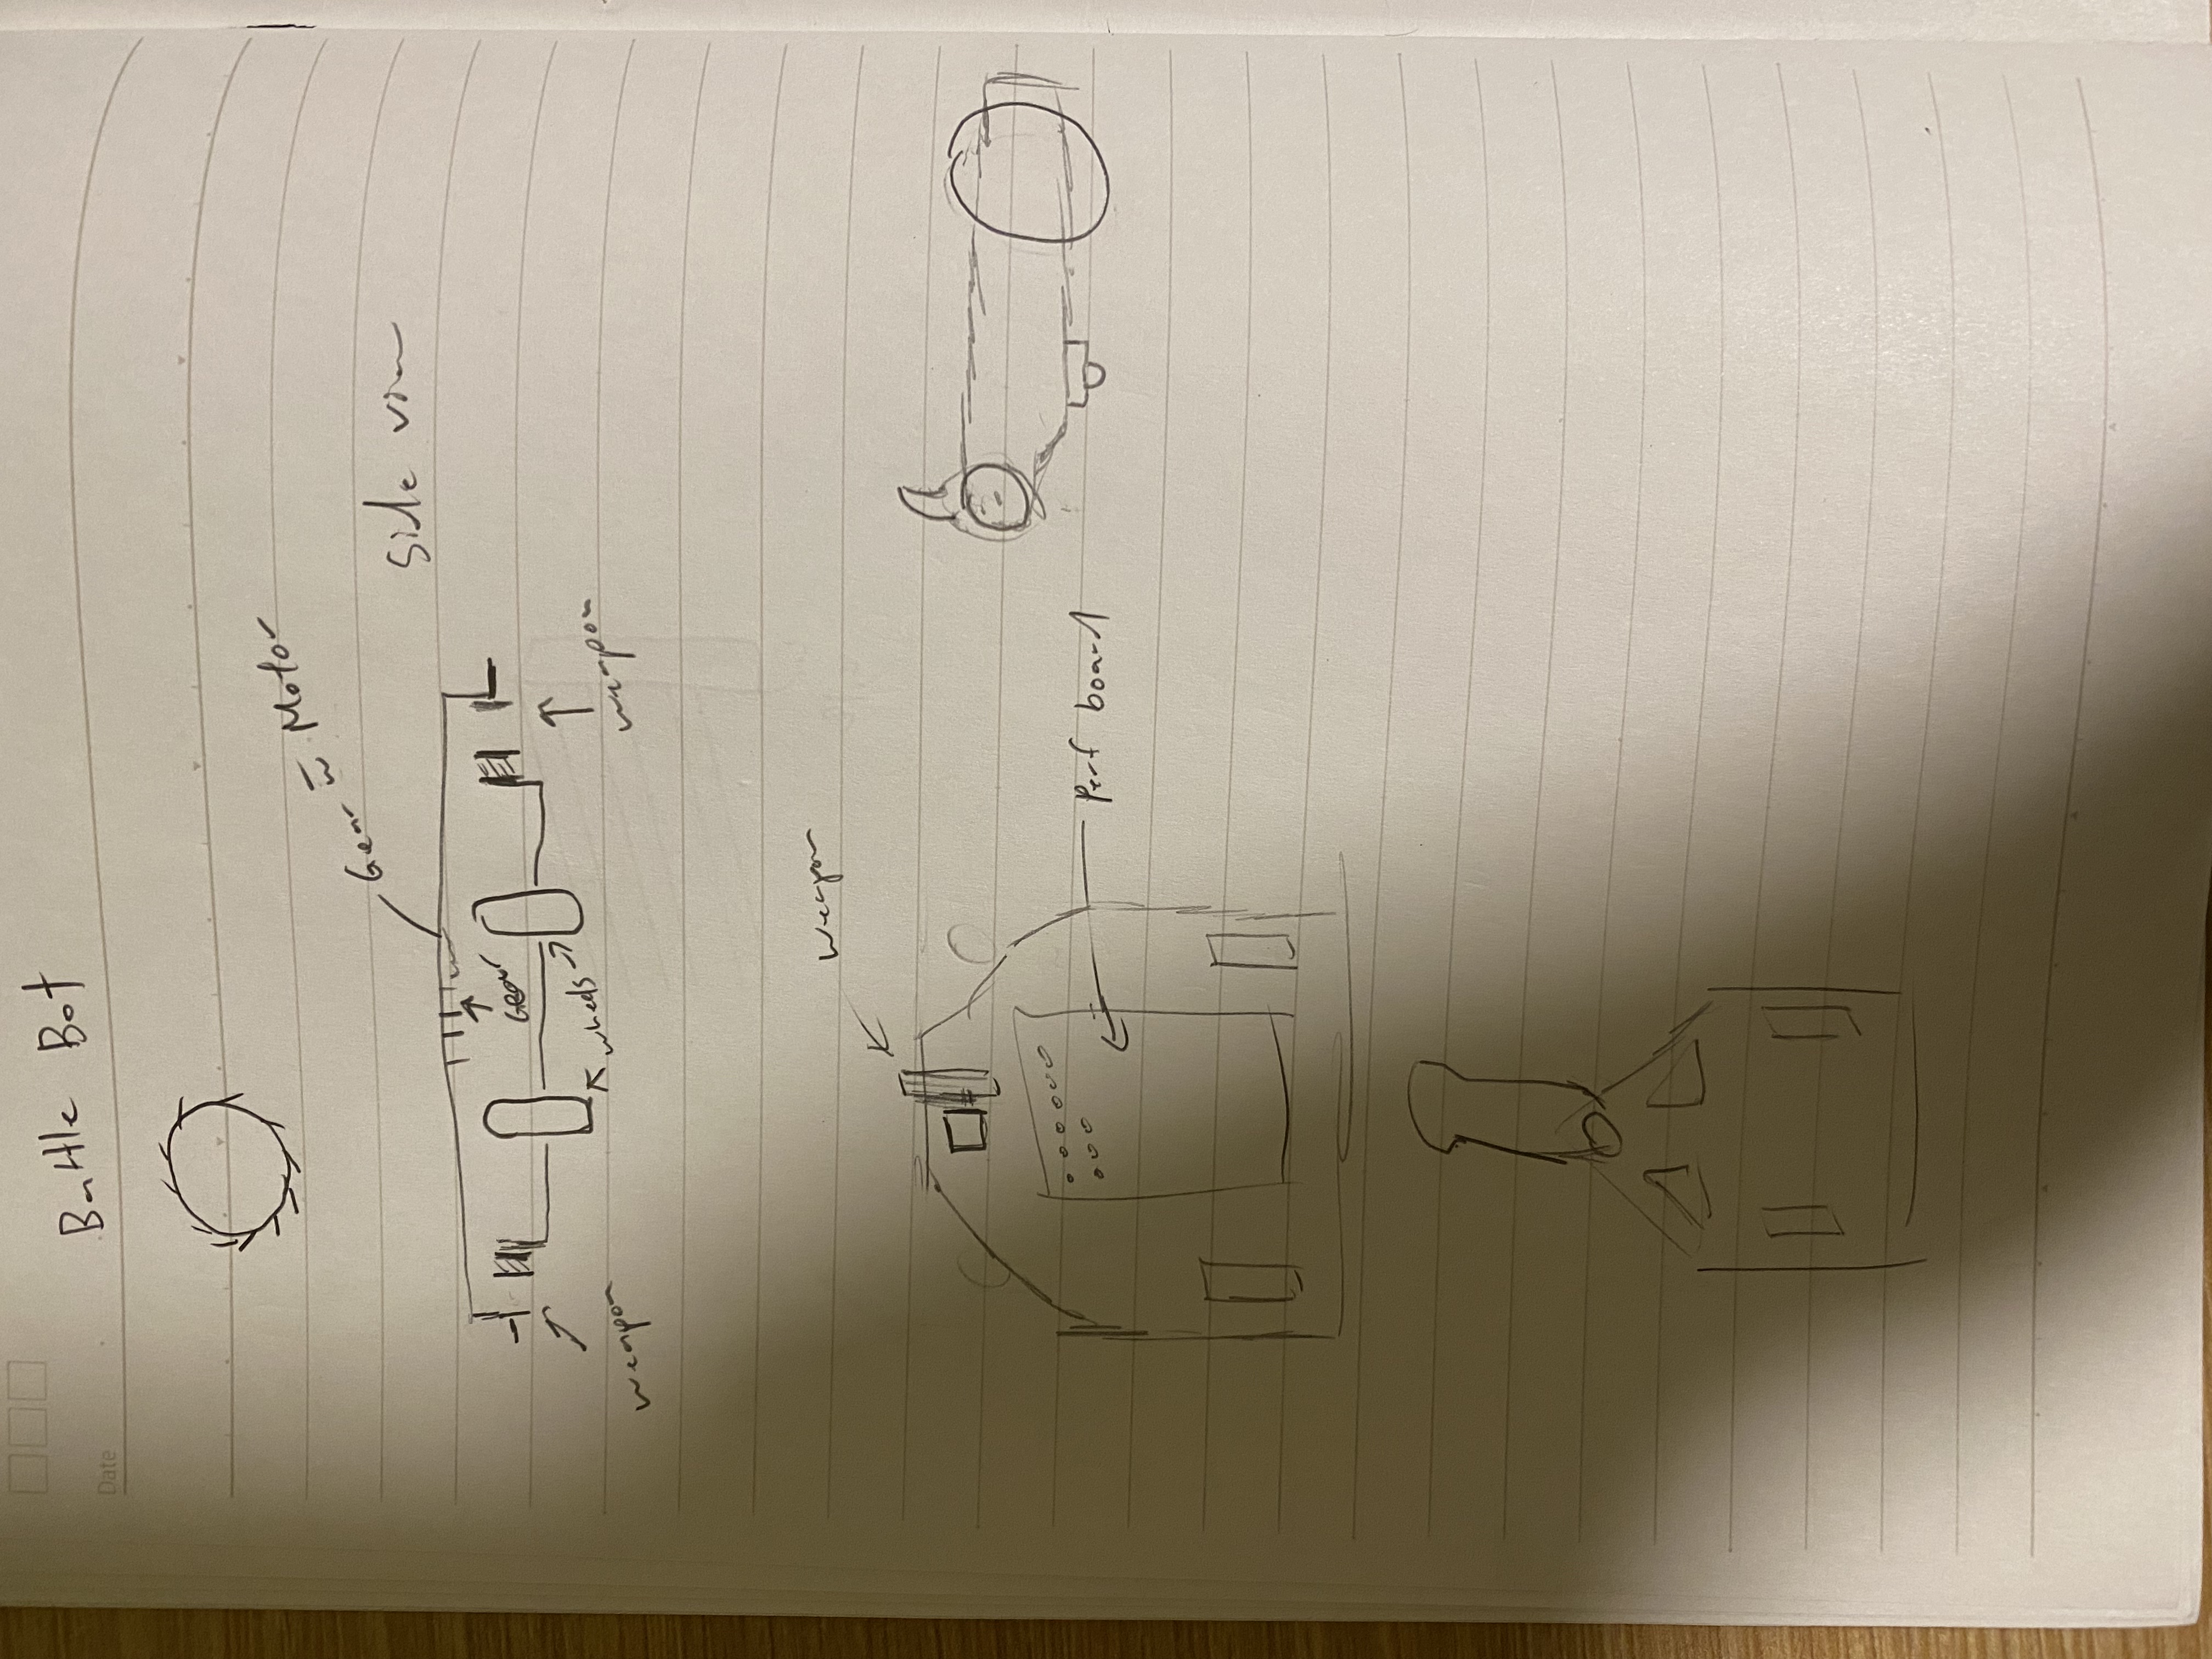 Date
Battle Bot
Gear w̄ Motor
Side view
Gear
wheels
weapon
weapon
weapon
Perf board